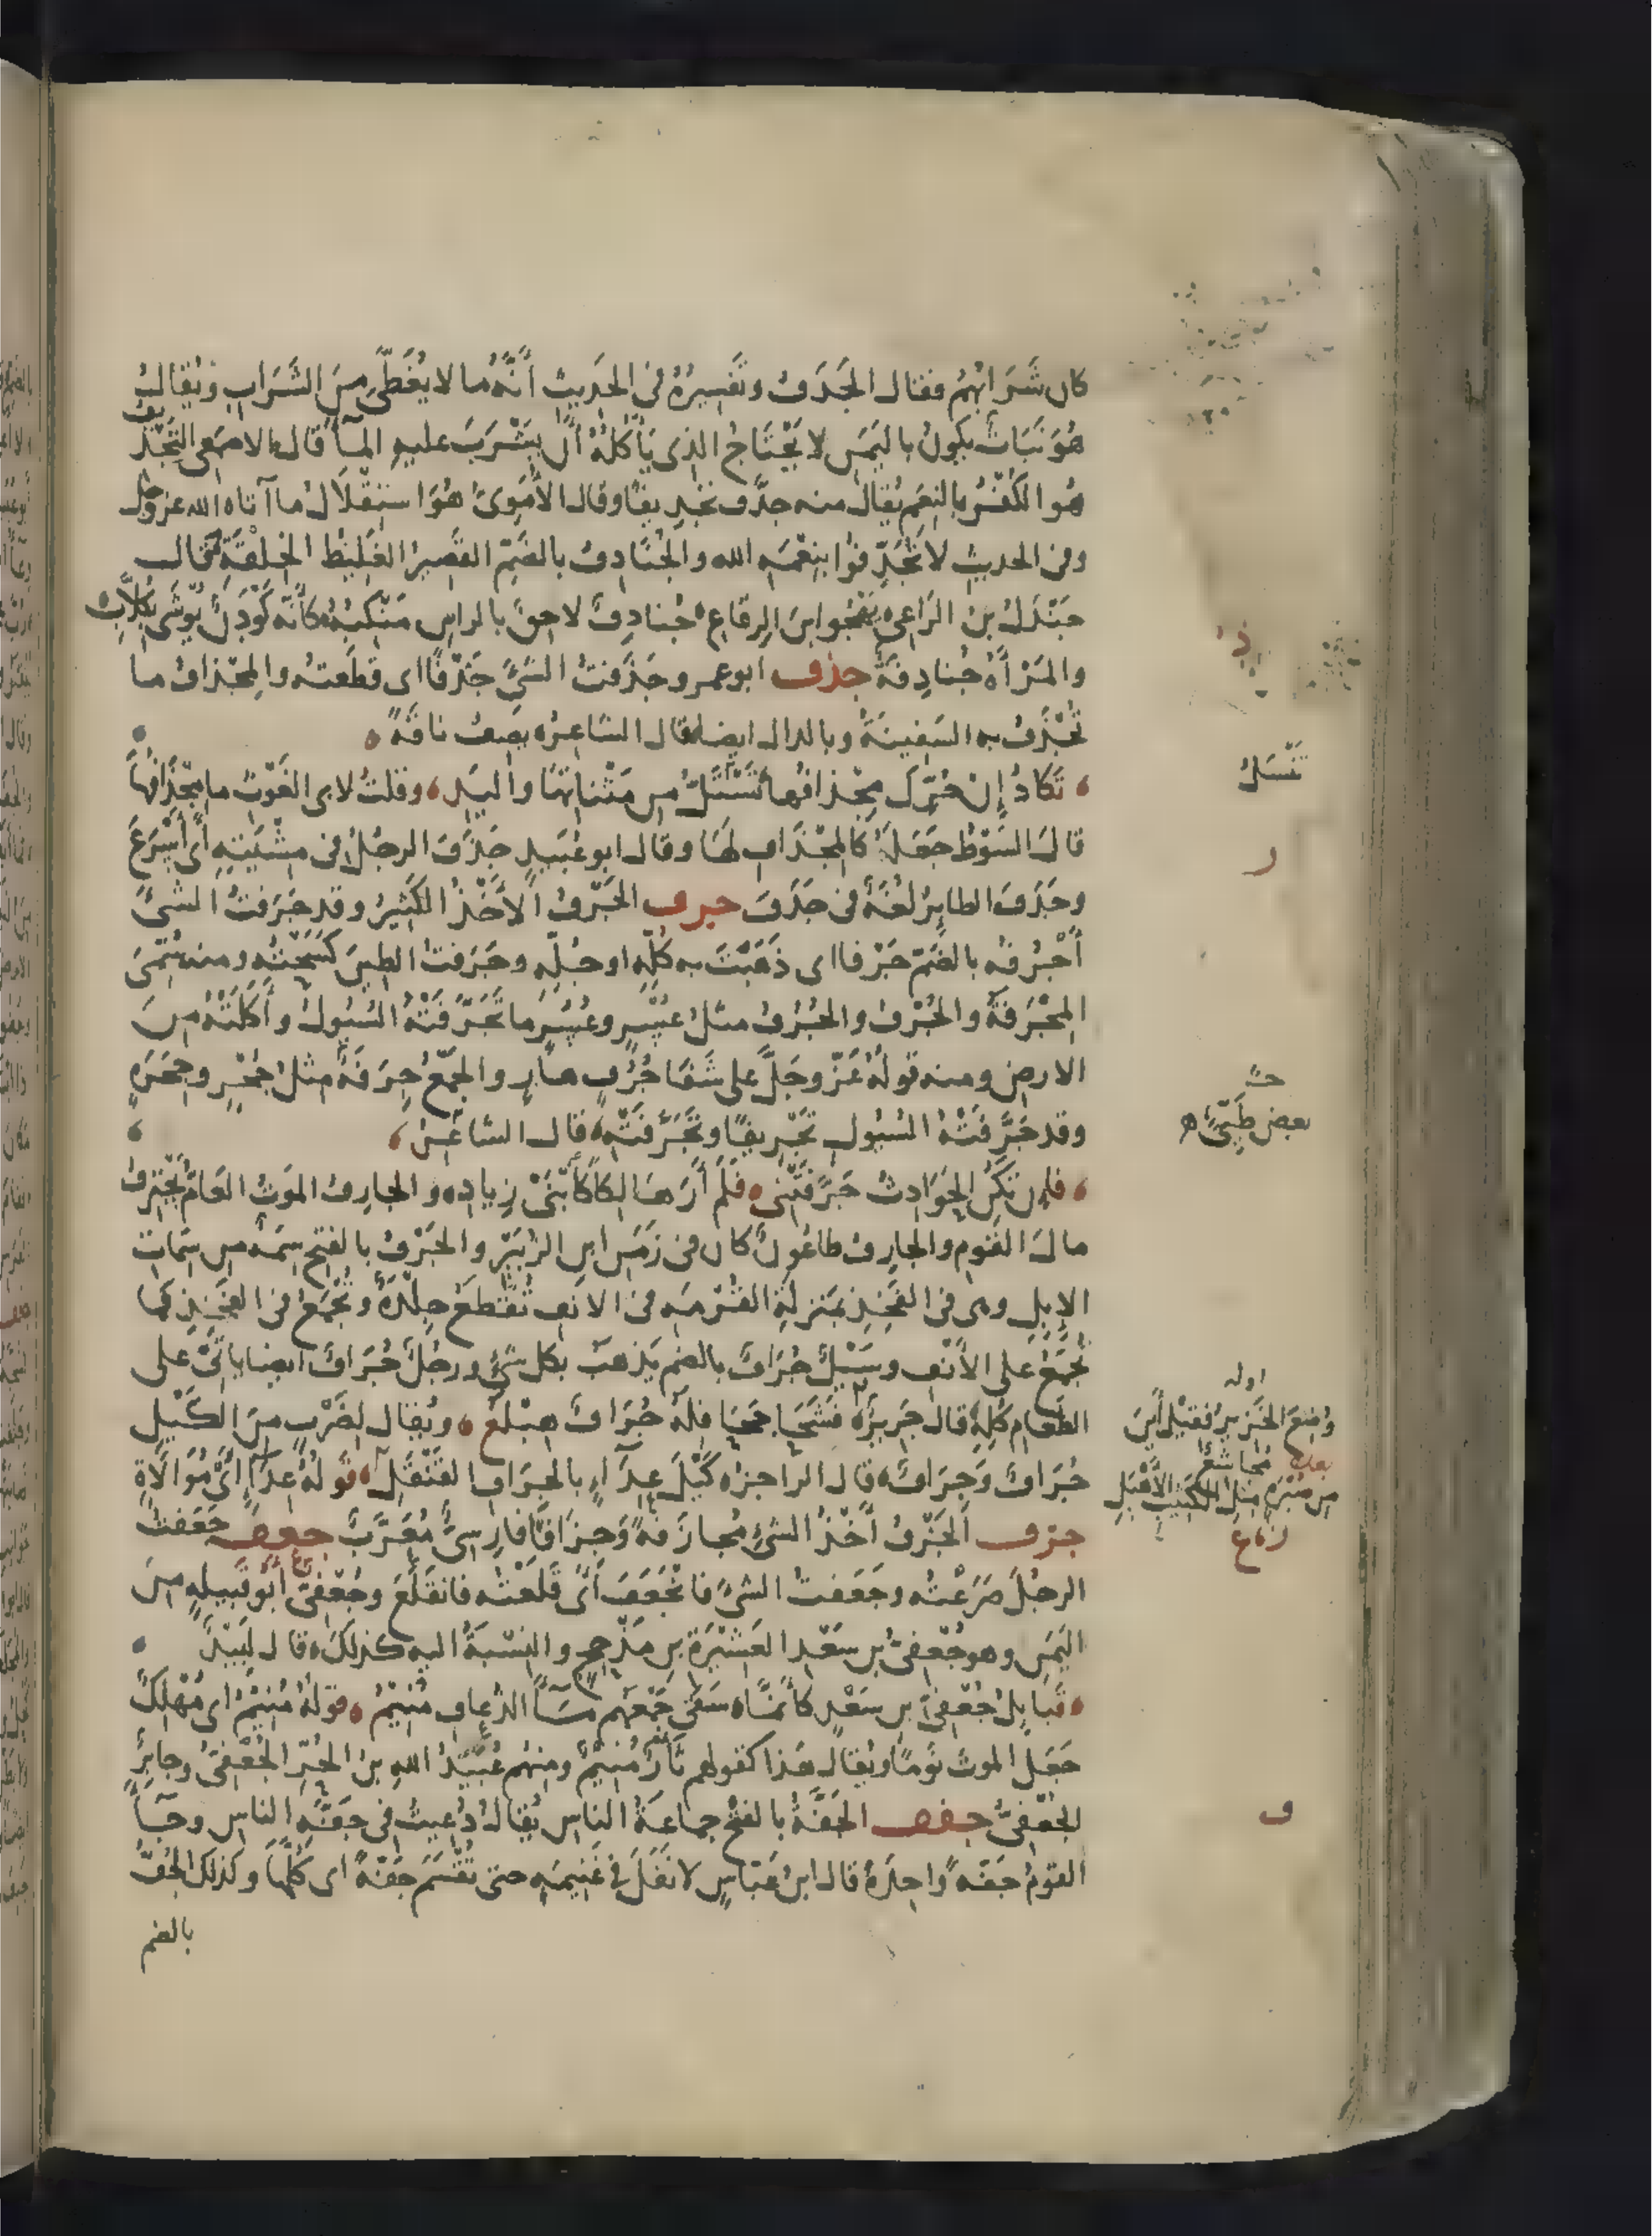 كان شَرَابُهُمْ فقال الجَدَفُ وتَفسِيرُهُ فى الحَدِيثِ أنَّهُ ما لا يُغَطَّى مِنَ الشَّرَابِ ويُقالُ
هُوَ نَبَاتٌ يكونُ باليَمَنِ لا يَحْتَاجُ الذى يَأْكُلُهُ أَنْ يَشْرَبَ عليهِ المآءَ قال الاصمَعى التَجْدِيفُ
هُوَ الكُفْرُ بالنِعَمِ يُقالُ منه جدَّفَ تَجْدِيفًا وقال الأُمَوِىُّ هُوَ استِقْلَالُ ما آتاه الله عز وجل
وفى الحديثِ لا تُجَدِّفُوا بِنِعْمَةِ الله والجُنَادِفُ بالضَمِّ القَصِيرُ الغَلِيظُ الخِلقَةِ قال
جَنْدَلُ بنُ الرَاعِى يَهْجُو ابنَ الرِقَاعِ جُنادِفٌ لاحِقٌ بالراسِ مَنْكِبُهُ كأنّه كَوْدَنٌ يُوشَى بِكُلَّابِ
والمَرْأَةُ جُنادِفَةٌ جذف ابوعمرو جَذَفتُ الشَىْءَ جَذْفًا اى قَطَعتُه والمِجْذافُ ما
تُجْذَفُ به السَفِينَةُ وبالدال ايضا قال الشاعِرُ يصِفُ ناقَةً
تَكادُ إن حُرِّكَ مِجْذافُها تَسْتَلُّ من مَثْناتِها واليَدِ وقلتُ لابى الغَوْثِ ما مِجْذَافُها
قالَ السَوْطُ جَعَلَهُ كالمِجْذَافِ لهَا وقال ابو عُبَيدٍ جَذَفَ الرجُلُ فى مِشْيَتِهِ أَى أَسْرَعَ
وجَذَفَ الطايِرُ لُغَةٌ فى جَدَفَ جرف الجَرْفُ الأَخْذُ الكَثِيرُ وقد جَرَفتُ الشىْءَ
أَجْرُفُه بالضَمّ جَرْفا اى ذَهَبْتَ به كُلِّهِ او جُلِّهِ وجَرَفتُ الطِينَ كَسَحْتُه ومنه سُمِّىَ
المِجْرَفَةُ والجُرْفُ والجُرُفُ مثلُ عُسْرٍ وعُسُرٍ ما تَجَرَّفَتْهُ السُيُولُ وأَكَلَتْهُ مِنَ
الارضِ ومنه قولُهُ عَزَّ وجَلَّ على شَفَا جُرُفٍ هارٍ والجَمْعُ جِرَفَةٌ مِثلُ جُحْرٍ وجِحَرَةٍ
وقد جَرَّفَتْهُ السُيُول تَجْرِيفًا وتَجَرَّفَتْهُ قال الشاعرُ
فإِن تَكُنِ الحَوَادِثُ جَرَّفَتْنِى فَلَم أَرَ هالِكًا كَابْنَىْ زِيادِ والجارِفُ الموتُ العَامُّ يَجْتَرِفُ
مالَ القَومِ والجارِفُ طاعُونٌ كان فى زَمَنِ ابنِ الزُبَيرِ والجَرْفُ بالفتح سِمَةٌ من سِمَاتِ
الإبِلِ وهى فى الفَخِذِ بمَنزِلةِ القُرْمَةِ فى الانفِ تُقْطَعُ جِلْدَةٌ وتُجْمَعُ فى الفَخِذِ كما
تُجْمَعُ على الأَنْفِ وسَيْلٌ جُرَافٌ بالضم يَذهَبُ بكل شىءٍ ورجُلٌ جُرَافٌ ايضا ياتى على
الطَعَامِ كُلِّهِ قال جَرِيرٌ فَشَحَا جَحَافِلَهُ جُرَافٌ هِبْلَعُ ويُقال لضَرْبٍ مِنَ الكَيْلِ
جُرَافٌ وَجِرَافٌ قال الراجزُ كَيْلَ عِدَآءٍ بالجِرَافِ القَنْقَلِ قولُهُ عِدَآءٍ أَى مُوَالَاةٍ
جزف الجَزْفُ أَخْذُ الشىءِ مُجازَفَةً وَجِزَافًا فارِسِىٌّ مُعَرَّبٌ جعف جَعَفتُ
الرجُلَ صَرَعْتُه وجَعَفتُ الشىءَ فانجَعَفَ أَى قَلَعْتُه فانقَلَعَ وجُعْفِىٌّ أبو قَبِيلةٍ مِنَ
اليَمَنِ وهو جُعْفِىُّ بن سَعْدِ العَشِيْرَةِ بن مَذْحِجٍ والنِسْبَةُ اليه كذلك قال لَبِيْدٌ
قَبايِلُ جُعْفِىِّ بنِ سَعْدٍ كأَنَّما سَقَى جَمْعَهُم مَآءُ الذُعافِ مُنِيْمُ قولُهُ مُنِيْمُ اى مُهْلِكٌ
جَعَلَ الموتَ نَومًا ويُقال هَذا كقولهم ثَأْرٌ مُنِيْمٌ ومِنهُم عُبَيْدُ اللهِ بنُ الحُرِّ الجُعْفِىُّ وجابِرٌ
الجُعْفِىُّ جفف الجَفَّةُ بالفتح جماعَةُ الناسِ يُقالُ دُعِيتُ فى جَفَّةِ الناسِ وجآءَ
القومُ جَفَّةً واحِدَةً قال ابنُ عَبّاسٍ لا نَفَلَ فى غَنِيمَةٍ حتى تُقْسَمَ جَفَّةً اى كُلُّها وكذلك الجُفُّ
بالضم
تَنْسَلُّ
ر
بعض طَيِّئٍ
اوله
وُضِعَ الخَزِيرُ فقيْلَ أَينَ
مُجاشِعٌ
ف